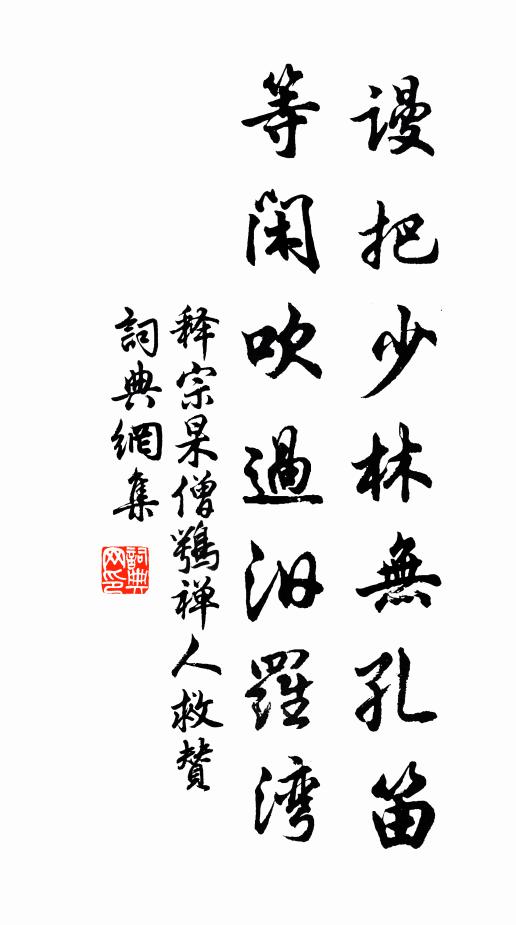 謾把少林無孔笛
等閑吹過汨羅湾
释宗杲僧鶚禅人救贊
詞典網集
詞典网印